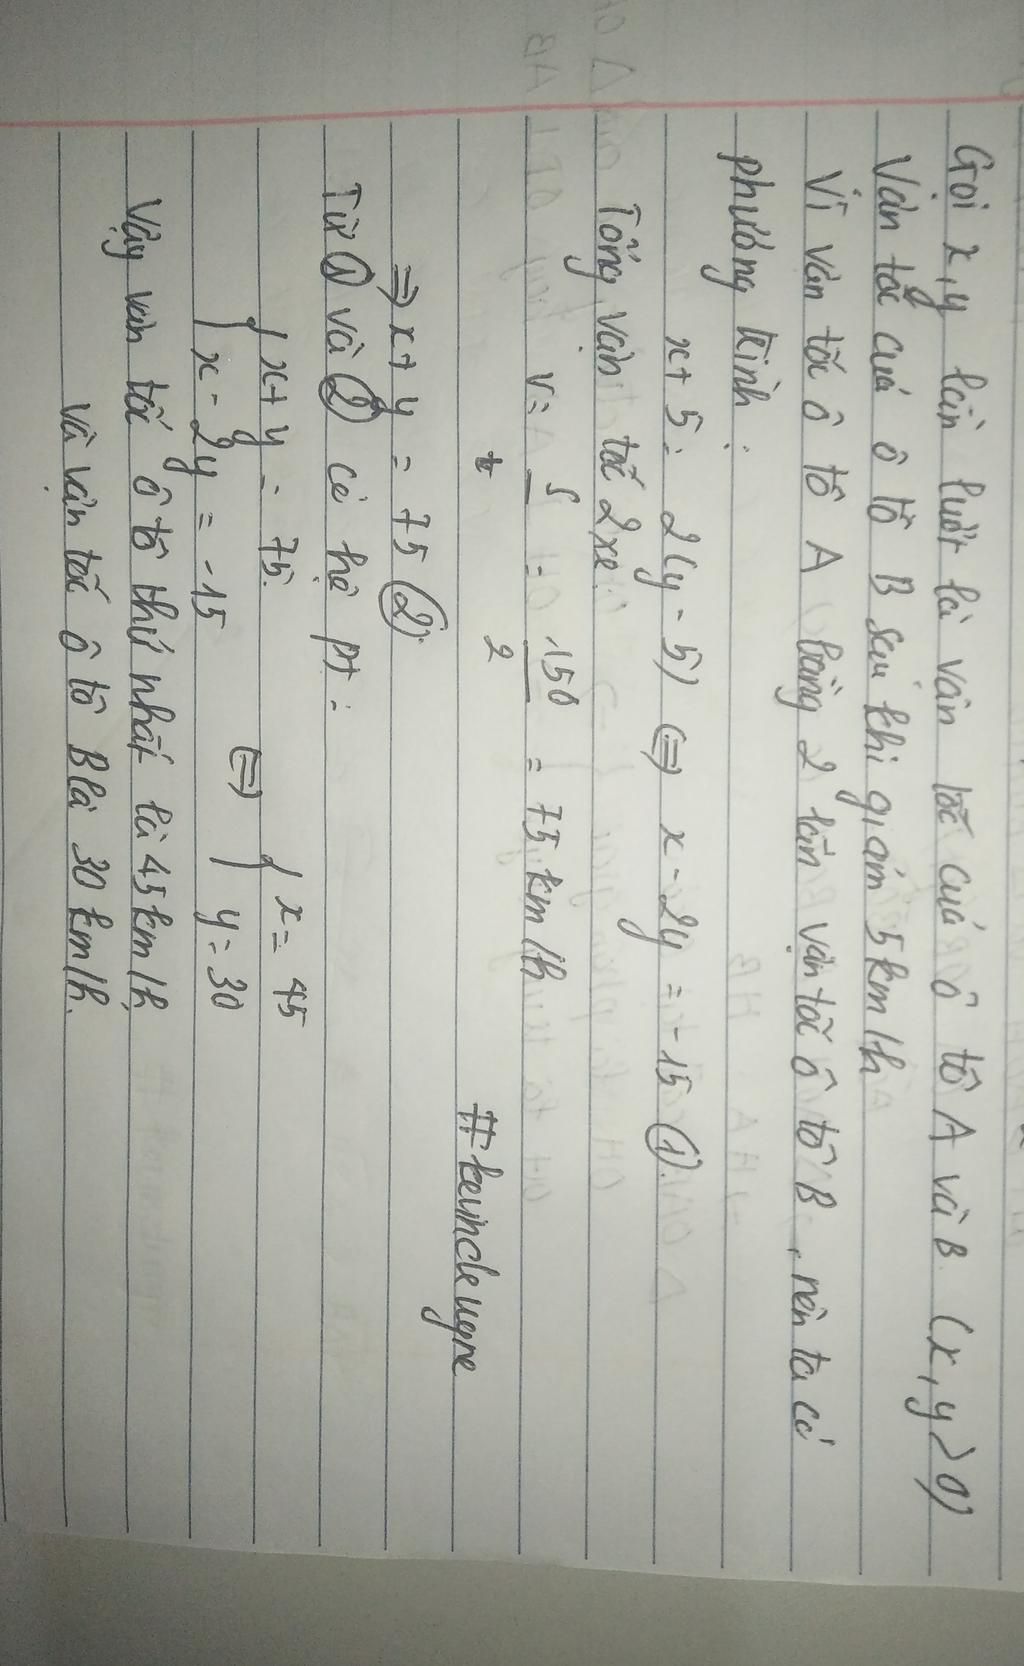 Gọi x, y lần lượt là vận tốc của ô tô A và B (x, y > 0)
Vận tốc của ô tô B sau khi giảm 5 km/h
Vì vận tốc ô tô A bằng 2 lần vận tốc ô tô B, nên ta có
phương trình:
x + 5 = 2(y - 5) ⇔ x - 2y = -15 (1).
Tổng vận tốc 2 xe.
v = s/t = 150/2 = 75 km/h
⇒ x + y = 75 (2).
Từ (1) và (2) có hệ pt:
{ x + y = 75. ⇔ { x = 45
{ x - 2y = -15 { y = 30
Vậy vận tốc ô tô thứ nhất là 45 km/h
và vận tốc ô tô B là 30 km/h.